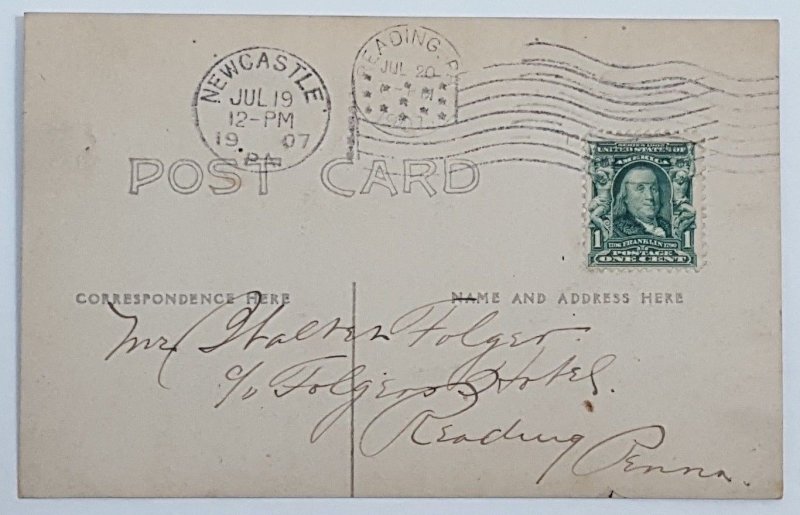 NEWCASTLE
JUL 19
12-PM
19 07
PA
READING, PA
JUL 20
1907
POST CARD
SERIES 1902
UNITED STATES OF
AMERICA
1 FRANKLIN 1
POSTAGE
ONE CENT
CORRESPONDENCE HERE
NAME AND ADDRESS HERE
Mr. Walter Folger.
c/o Folgers Hotel.
Reading
Penna.